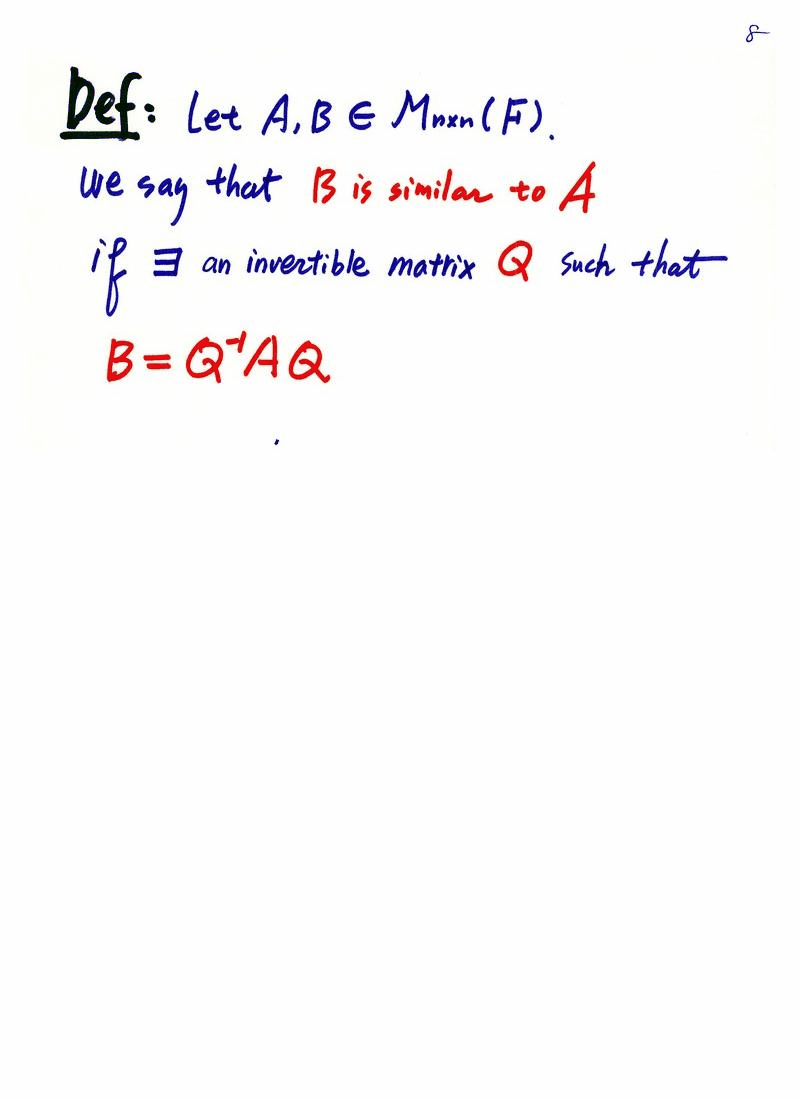 8
Def: Let A, B ∈ Mn×n(F).
We say that B is similar to A
if ∃ an invertible matrix Q such that
B = Q⁻¹AQ